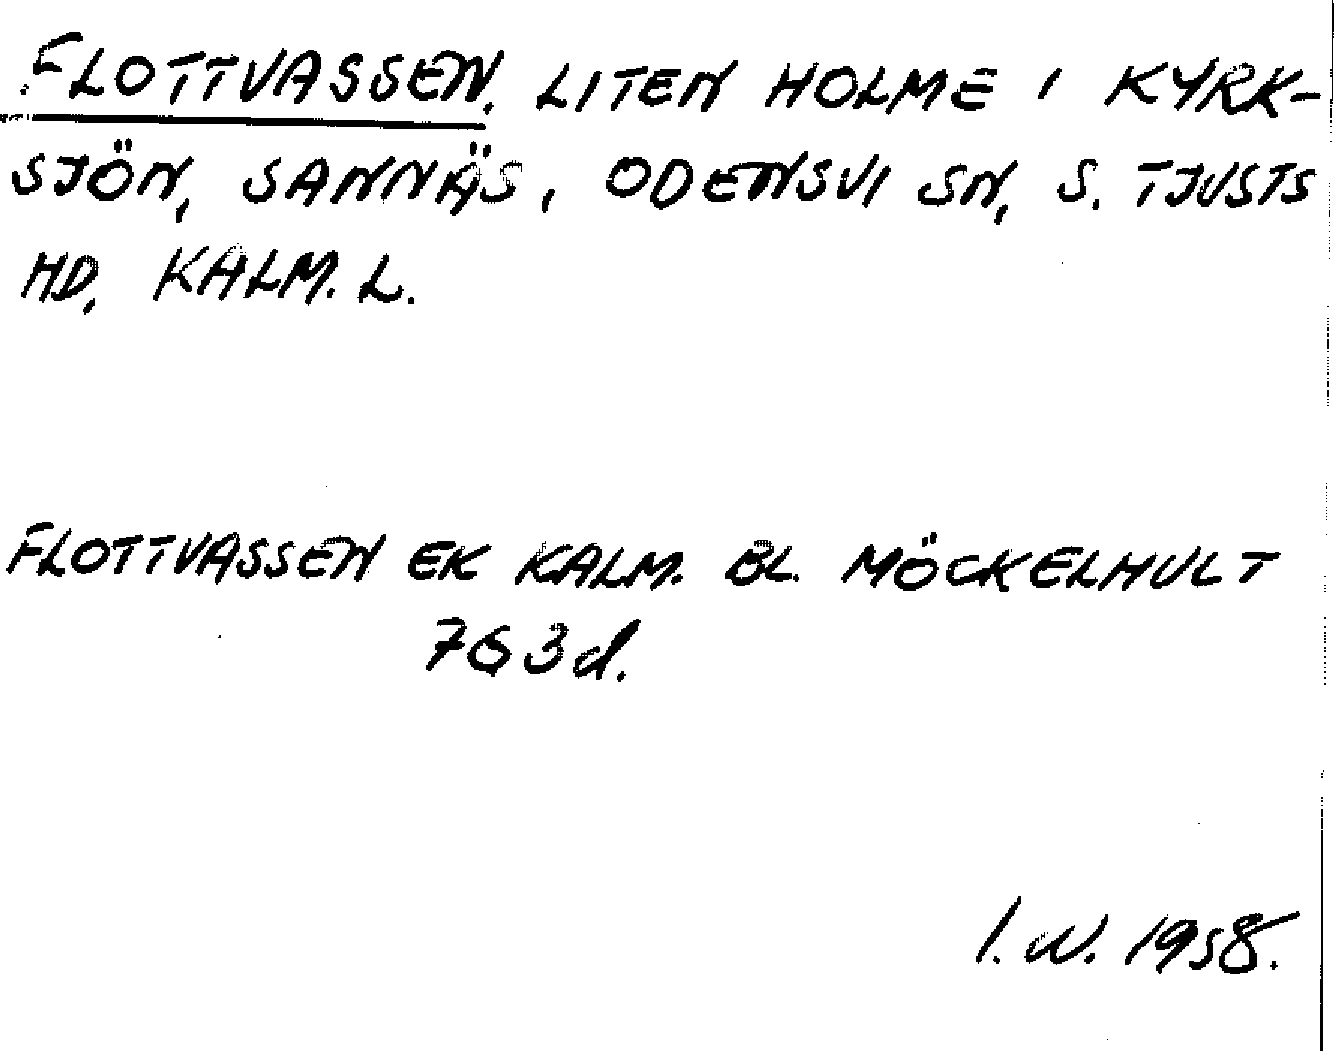 FLOTTVASSEN. LITEN HOLME I KYRK-
SJÖN, SANNÄS, ODENSVI SN, S. TJUSTS
HD, KALM. L.
FLOTTVASSEN EK KALM. BL. MÖCKELHULT
763d.
I.W. 1958.